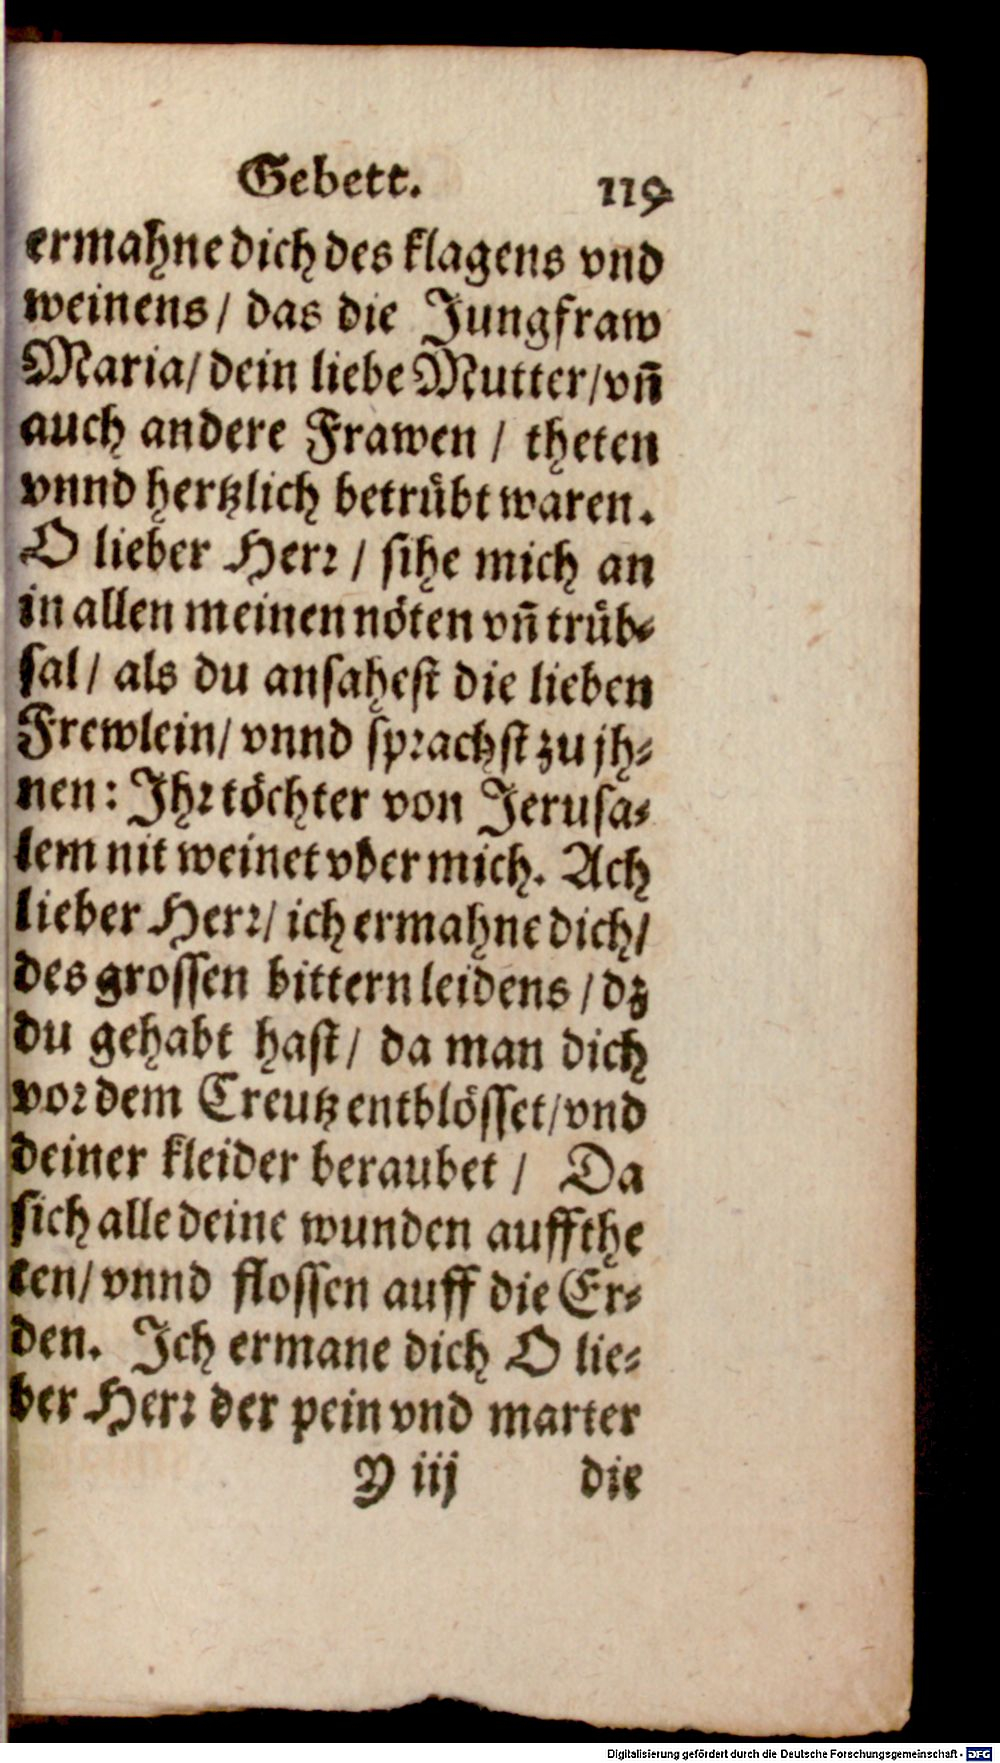 Gebett. 119
ermahne dich des klagens vnd
weinens / das die Jungfraw
Maria / dein liebe Mutter / vñ
auch andere Frawen / theten
vnnd hertzlich betrübt waren.
O lieber Herr / sihe mich an
in allen meinen nöten vñ trüb-
sal / als du ansahest die lieben
Frewlein / vnnd sprachst zu jh-
nen: Ihr töchter von Jerusa-
lem nit weinet vber mich. Ach
lieber Herr / ich ermahne dich /
des grossen bittern leidens / dz
du gehabt hast / da man dich
vor dem Creutz entblösset / vnd
deiner kleider beraubet / Da
sich alle deine wunden auffthe
ten / vnnd flossen auff die Er-
den. Ich ermane dich O lie-
ber Herr der pein vnd marter
Y iij die
Digitalisierung gefördert durch die Deutsche Forschungsgemeinschaft - DFG